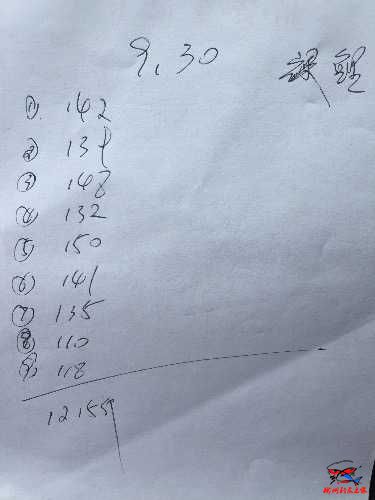 9.30 鲤
① 142
② 139
③ 148
④ 132
⑤ 150
⑥ 141
⑦ 135
⑧ 110
⑨ 118
1215斤